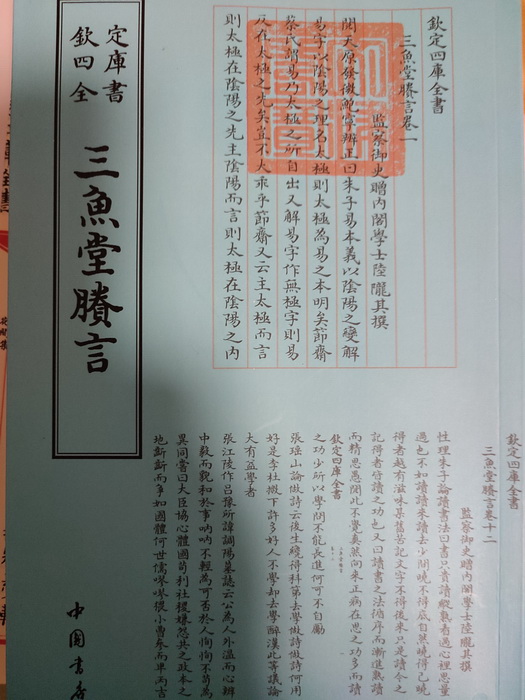 欽定四庫全書
三魚堂賸言卷一
監察御史贈内閣學士陸隴其撰
閱天原發微鮑寧辨正曰朱子易本義以陰陽之變解
易字以陰陽之理名太極則太極為易之本明矣節齋
蔡氏謂易乃太極之所自出又解易字作無極字則易
反在太極之先矣豈不大乖乎節齋又云主太極而言
則太極在陰陽之先主陰陽而言則太極在陰陽之内
欽定
四庫
全書
三魚堂賸言
欽定四庫全書
三魚堂賸言卷十二
監察御史贈内閣學士陸隴其撰
性理朱子論讀書法曰書只貴讀讀熟看過心裡思量
過也不如讀讀來讀去少間曉不得底自然曉得已曉
得者越有滋味某舊苦記文字不得後來只是讀今之
記得者皆讀之功也又曰讀書之法循序而漸進熟讀
而精思愚閱此不覺爽然向來正病在思之功多而讀
欽定四庫全書
之功少所以學問不能長進何可不自勵
張瑶山論做詩云後生纔得科第去學做詩做詩何用
好是李杜撇下許多好人不學却去學醉漢此等議論
大有益學者
張江陵作呂豫所諱調陽墓誌云公為人外温而心辨
中毅而貌和於事呐呐不輕為可否於人恂恂不苟為
異同嘗曰大臣協心體國苟利社稷嫌怨共之政本之
地斷斷而爭如國體何世儒嘐嘐獵小譽
中國書店